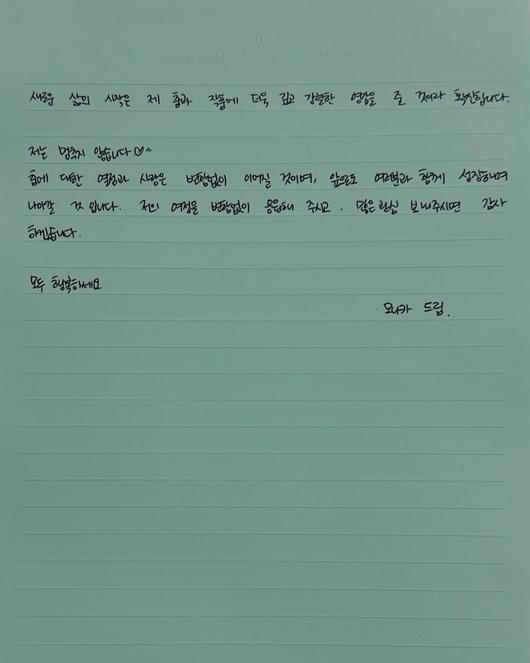 새로운 삶의 시작은 제 춤과 작품에 더욱 깊고 강렬한 영감을 줄 것이라 확신합니다.
저는 멈추지 않습니다♡~
춤에 대한 열정과 사랑은 변함없이 이어질 것이며, 앞으로도 여러분과 함께 성장하며
나아갈 것 입니다. 저의 여정을 변함없이 응원해 주시고, 많은 관심 보내주시면 감사
하겠습니다.
모두 행복하세요
모니카 드림.